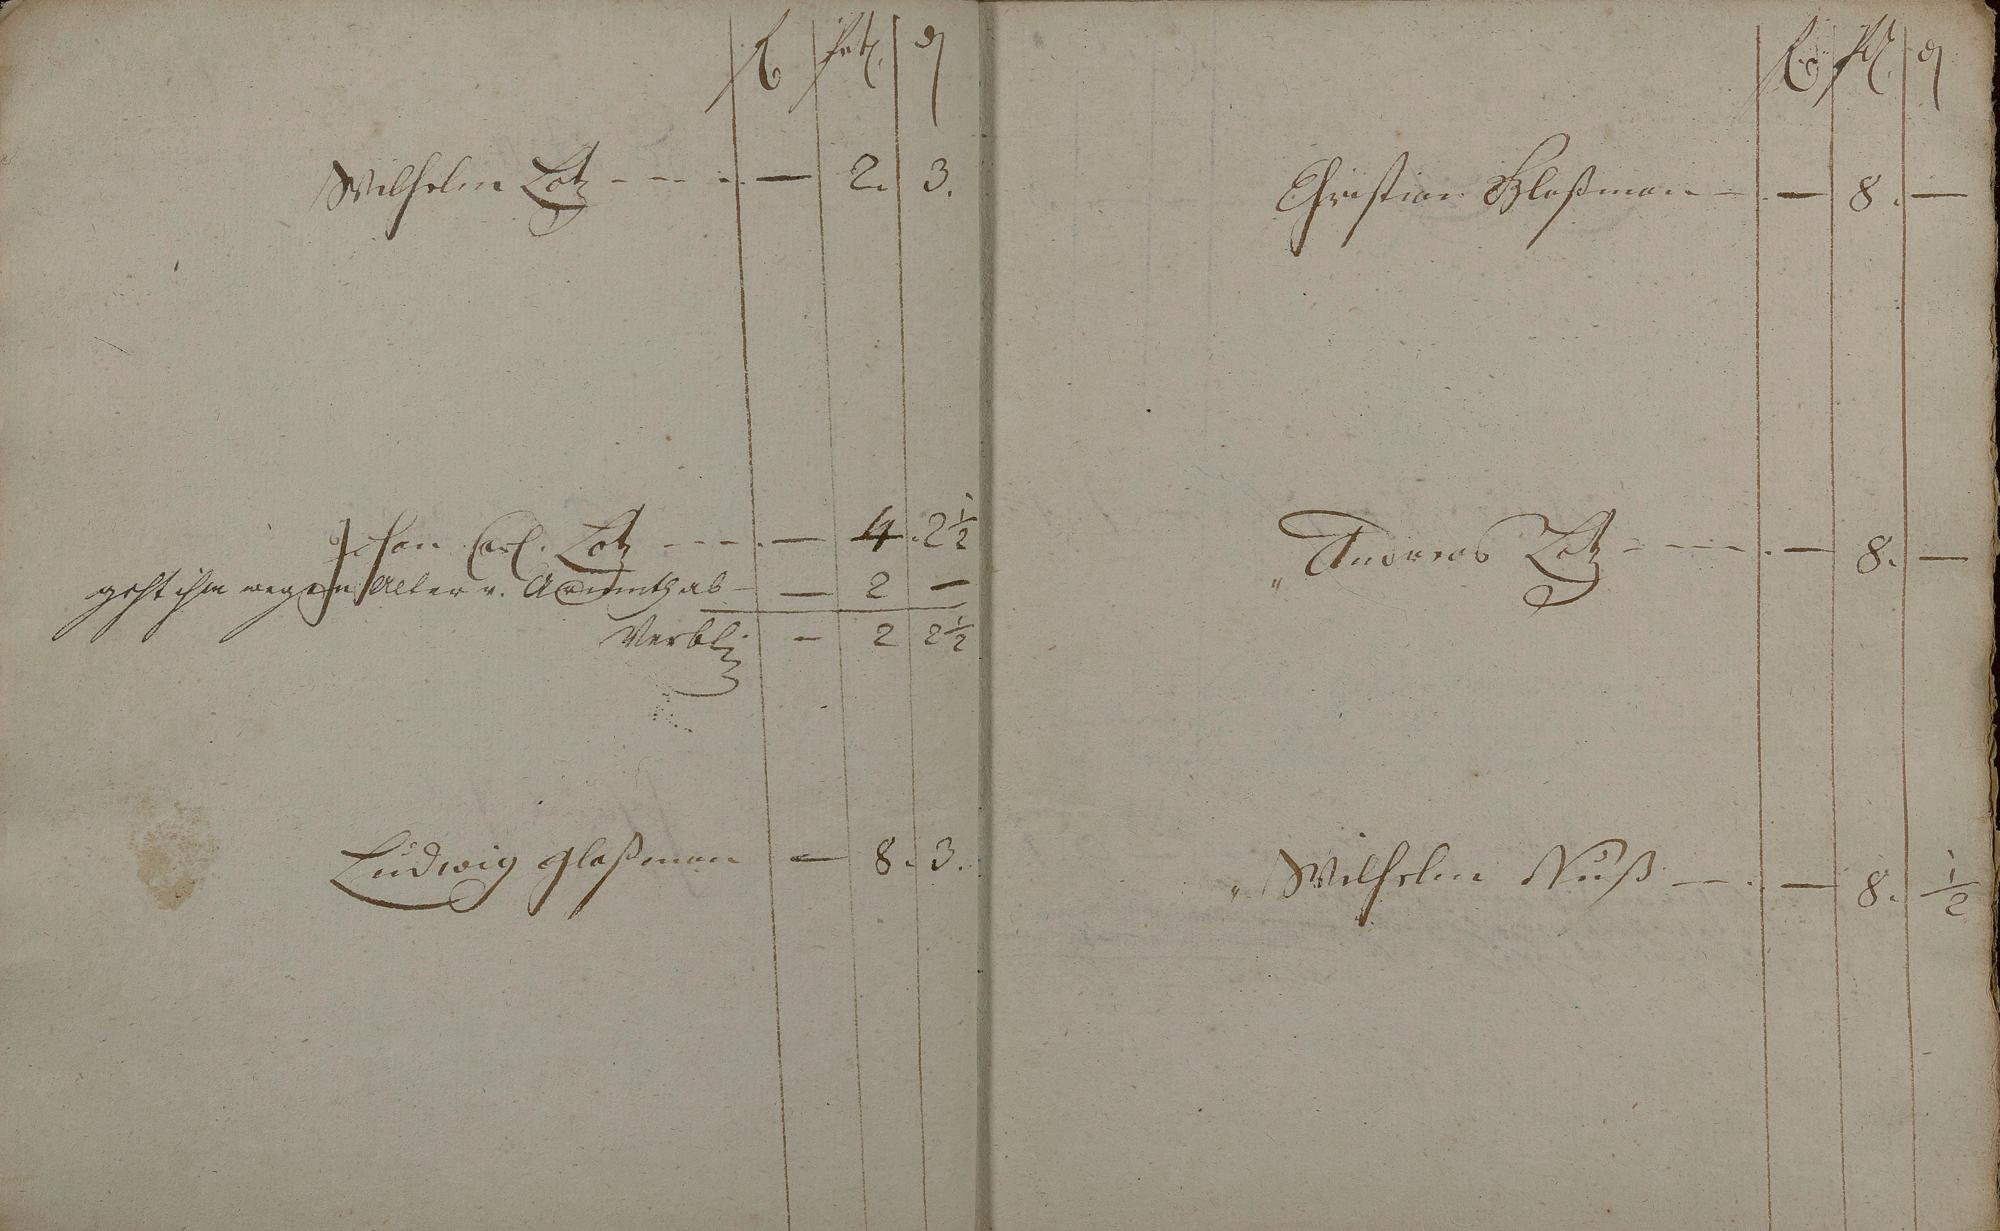 fl btz. d
Wilhelm Lotz - - - - — 2. 3.
Johan Carl. Lotz - - - - — 4. 2½
geht ihm wegen Alter u. Armuth ab — — 2 —
Verbl. — 2 2½
Ludwig Glaßman — 8. 3.
fl btz. d
Christian Glaßman — — 8. —
„ Andreas Lotz - - - - — 8. —
„ Wilhelm Nuß — — 8. ½